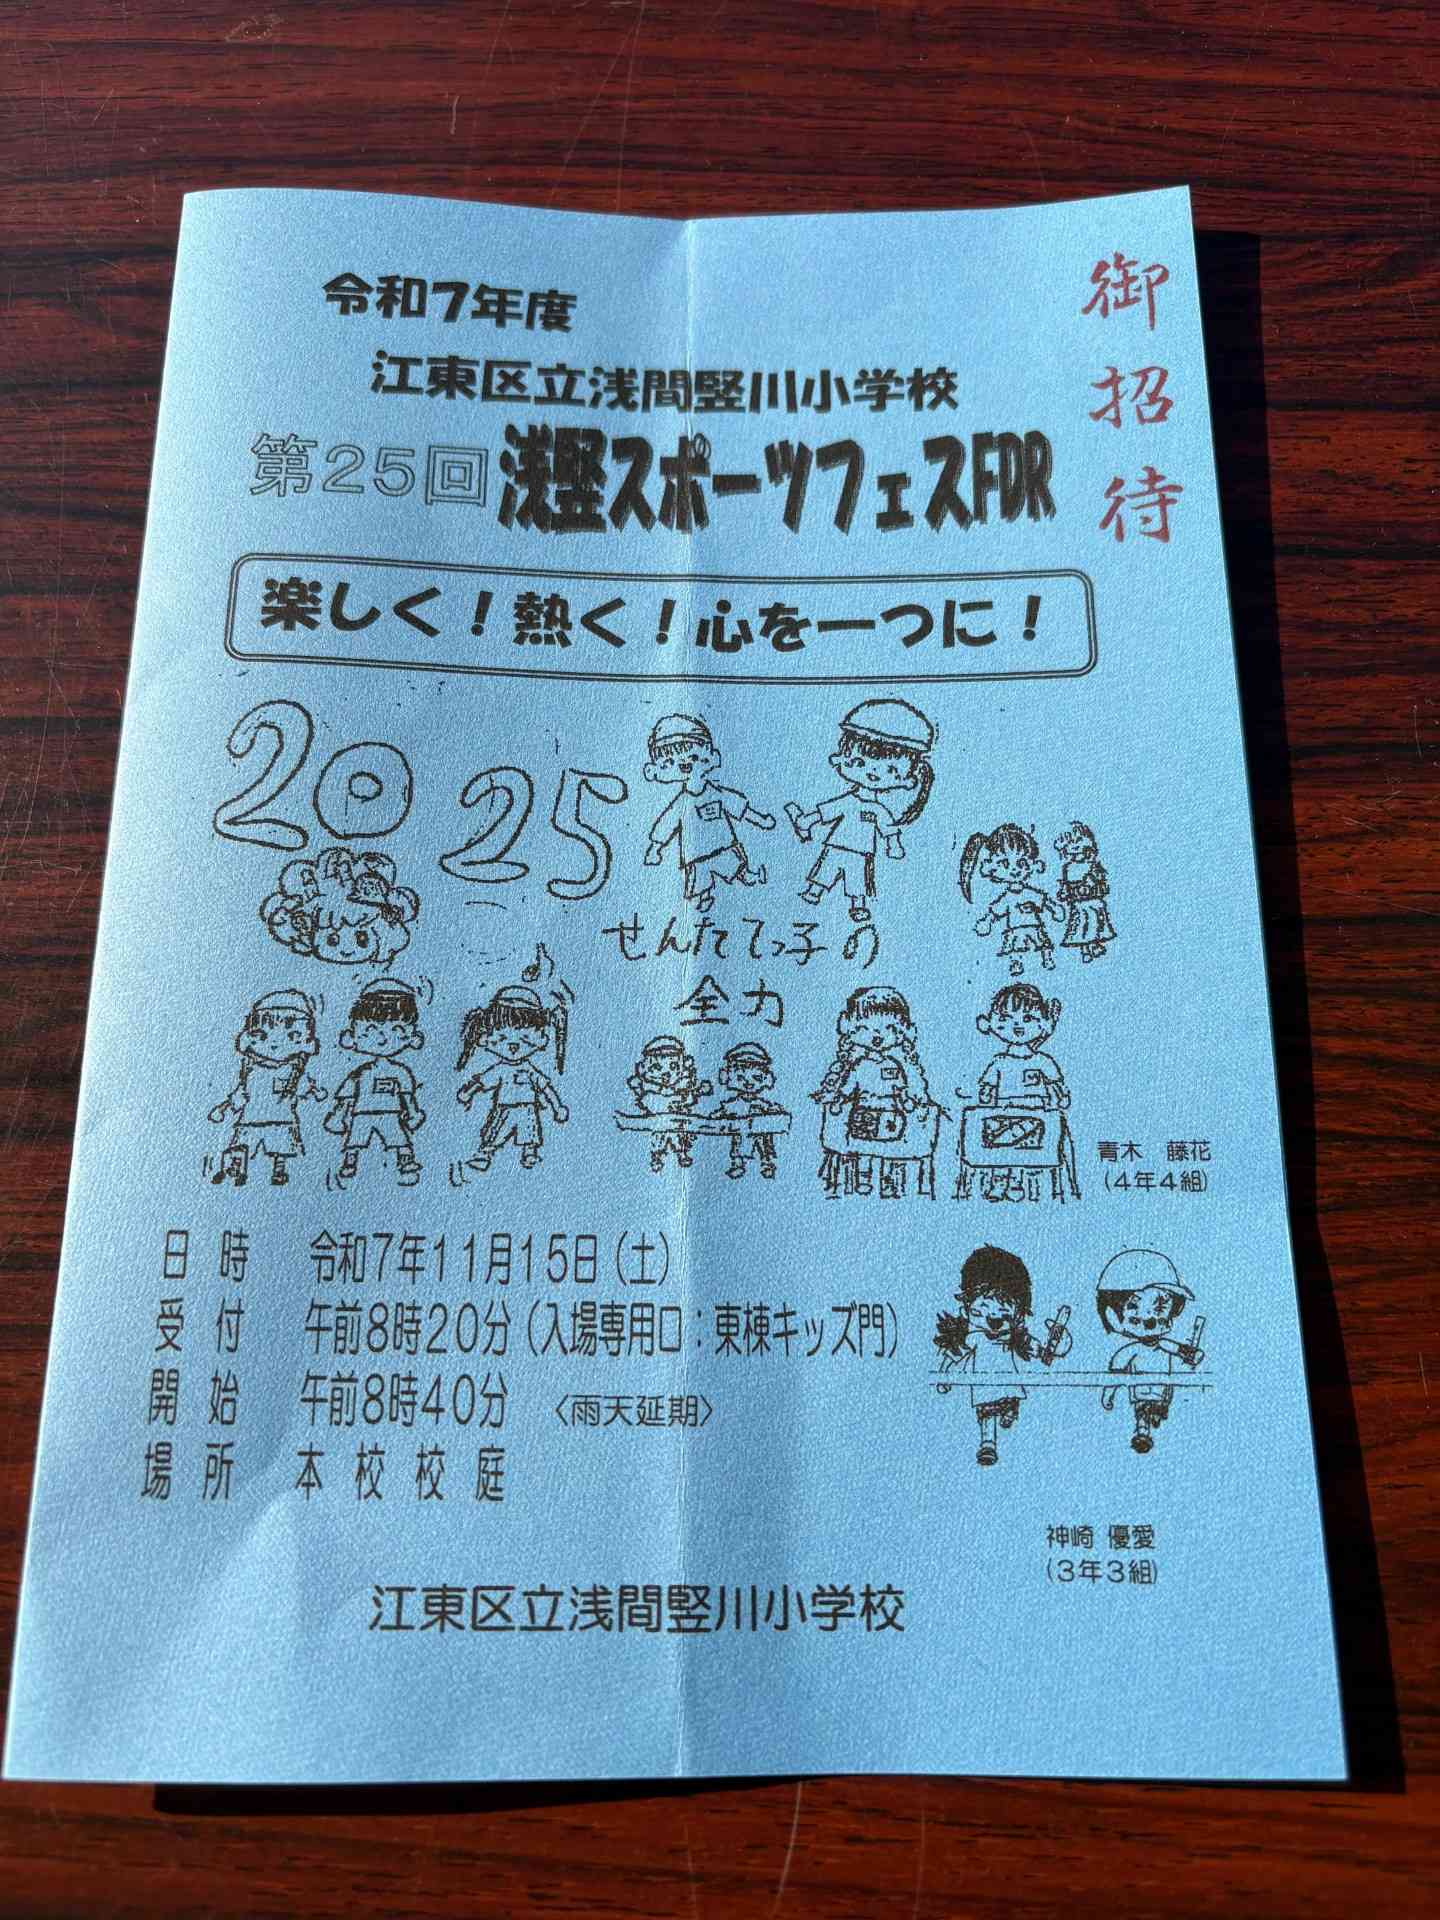 御招待
令和7年度
江東区立浅間竪川小学校
第25回 浅竪スポーツフェスFDR
楽しく！熱く！心を一つに！
2025
せんたてっ子の
全力
青木 藤花
(4年4組)
日時 令和7年11月15日（土）
受付 午前8時20分（入場専用口：東棟キッズ門）
開始 午前8時40分 〈雨天延期〉
場所 本校校庭
神崎 優愛
(3年3組)
江東区立浅間竪川小学校